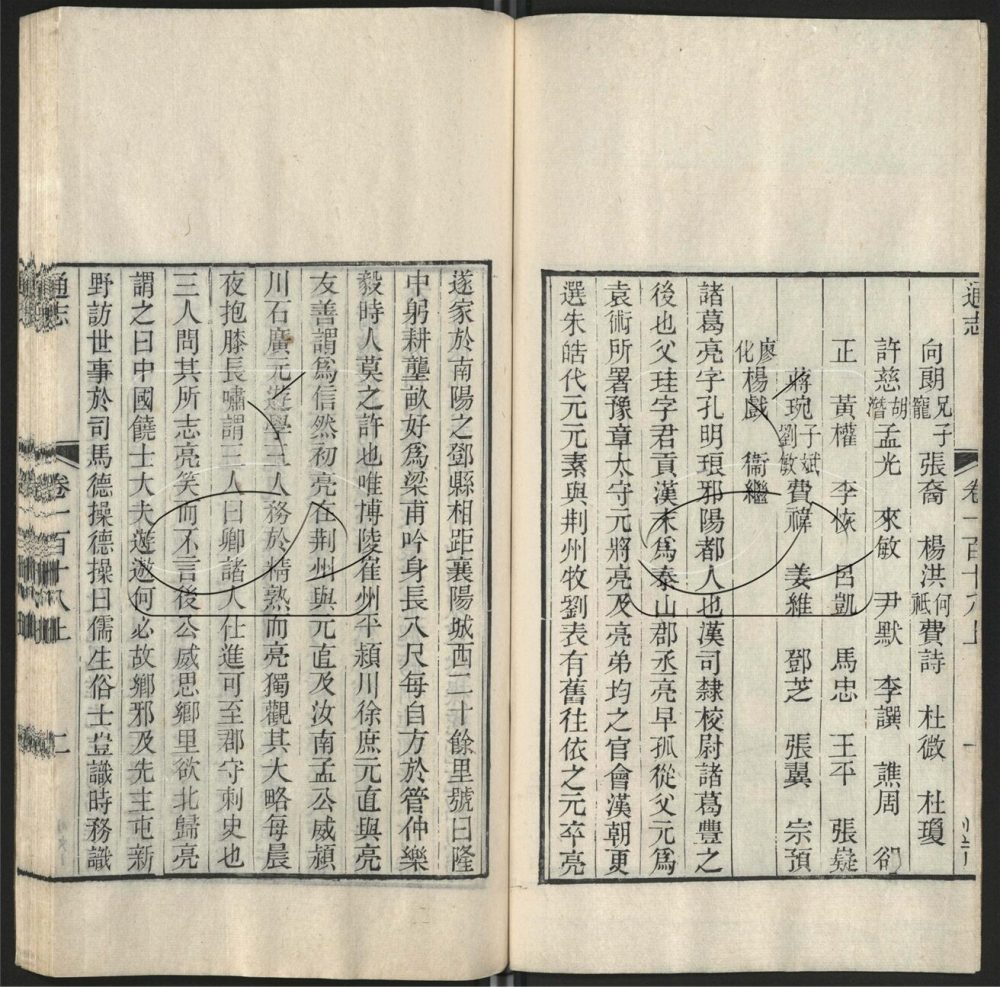 通志 卷一百十八上 一
向朗兄子寵 張裔 楊洪何祗 費詩 杜微 杜瓊
許慈胡潛 孟光 來敏 尹默 李譔 譙周 郤
正 黃權 李恢 呂凱 馬忠 王平 張嶷
蔣琬子斌劉敏 費禕 姜維 鄧芝 張翼 宗預
廖化 楊戲 衞繼
諸葛亮字孔明琅邪陽都人也漢司隸校尉諸葛豐之
後也父珪字君貢漢末爲泰山郡丞亮早孤從父元爲
袁術所署豫章太守元將亮及亮弟均之官會漢朝更
選朱皓代元元素與荆州牧劉表有舊往依之元卒亮
遂家於南陽之鄧縣相距襄陽城西二十餘里號曰隆
中躬耕壟畝好爲梁甫吟身長八尺每自方於管仲樂
毅時人莫之許也唯博陵崔州平潁川徐庶元直與亮
友善謂爲信然初亮在荆州與元直及汝南孟公威潁
川石廣元遊學三人務於精熟而亮獨觀其大略每晨
夜抱膝長嘯謂三人曰卿諸人仕進可至郡守刺史也
三人問其所志亮笑而不言後公威思鄉里欲北歸亮
謂之曰中國饒士大夫遊遨何必故鄉邪及先主屯新
野訪世事於司馬德操德操曰儒生俗士豈識時務識
通志 卷一百十八上 二